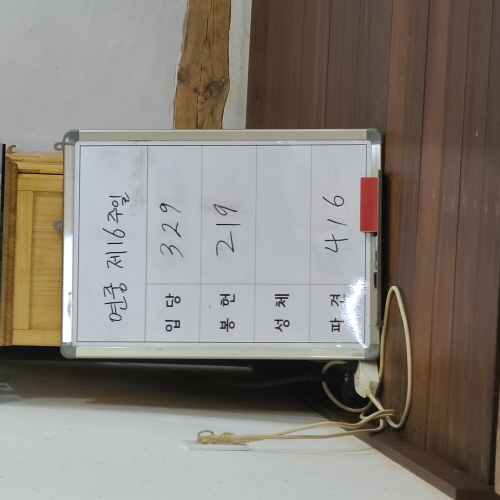 연중 제16주일
입당 329
봉헌 219
성체
파견 416